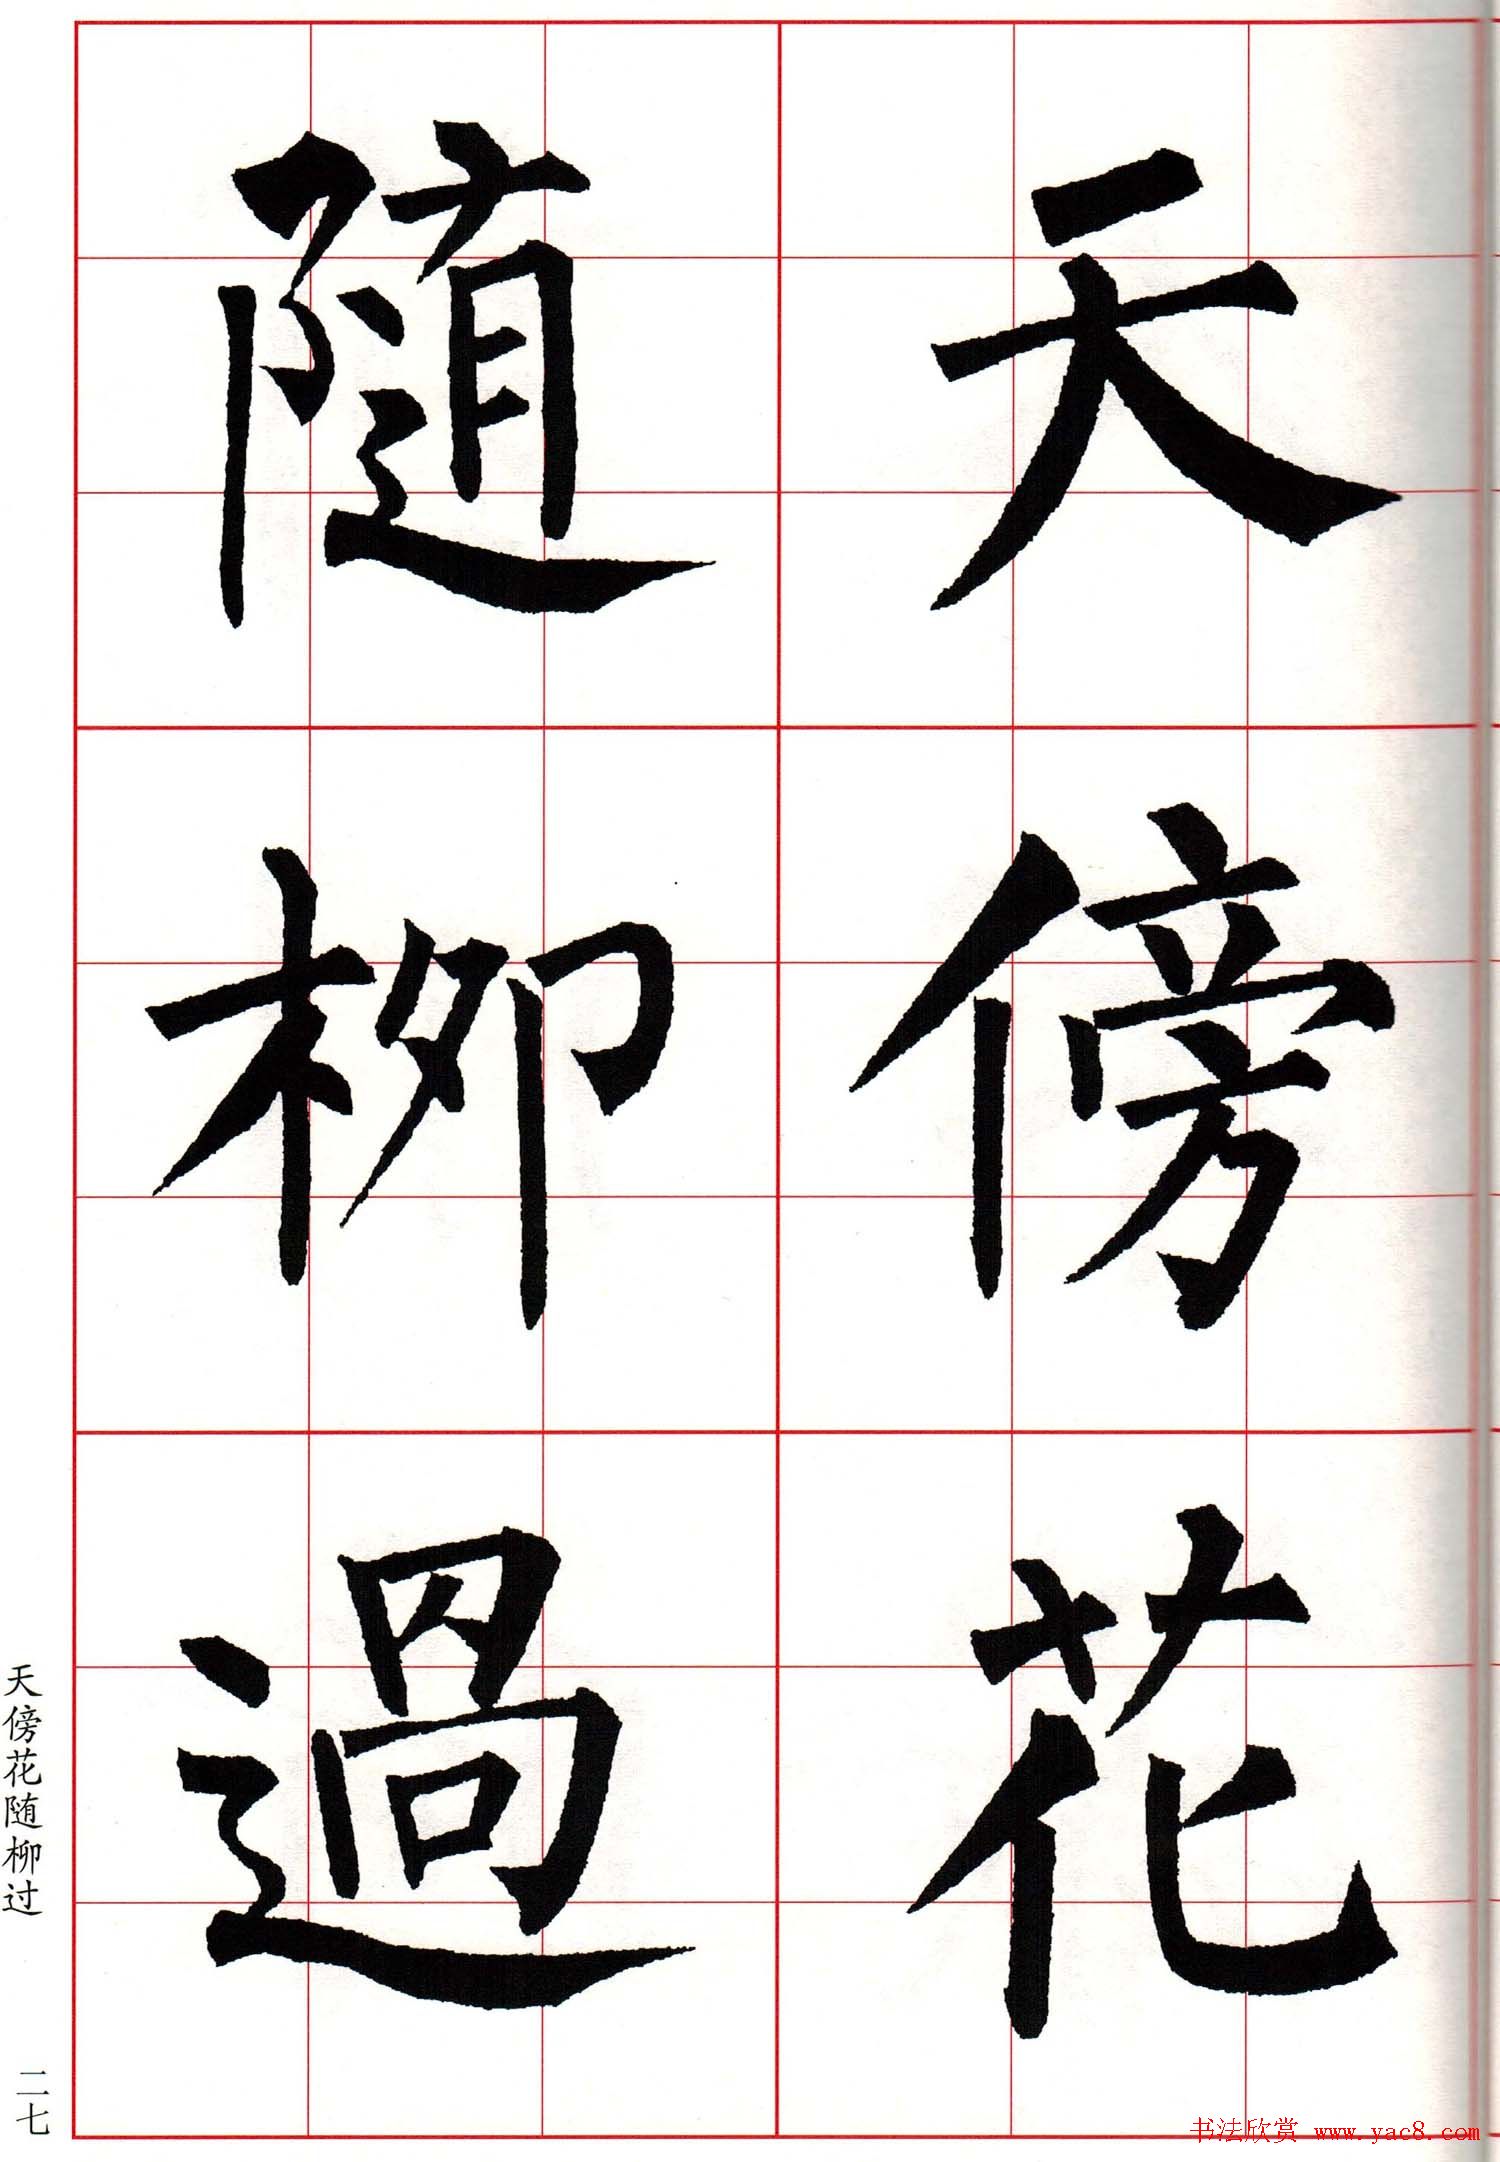 天傍花
随柳過
天傍花随柳过
二七
书法欣赏 www.yac8.com